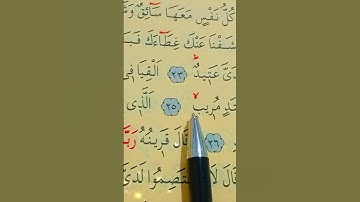 كُلُّ نَفْسٍ مَعَهَا سَٓائِقٌ
شَفْنَا عَنْكَ غِطَٓاءَكَ فَبَ
دَىَّ عَتِيدٌ ﴿٢٣﴾ اَلْقِيَا فِى
مُرِيبٍ ﴿٢٥﴾ اَلَّذِى
﴿٢٦﴾ قَالَ قَرِينُهُ رَبَّ
قَالَ لَا تَخْتَصِمُوا لَدَىَّ